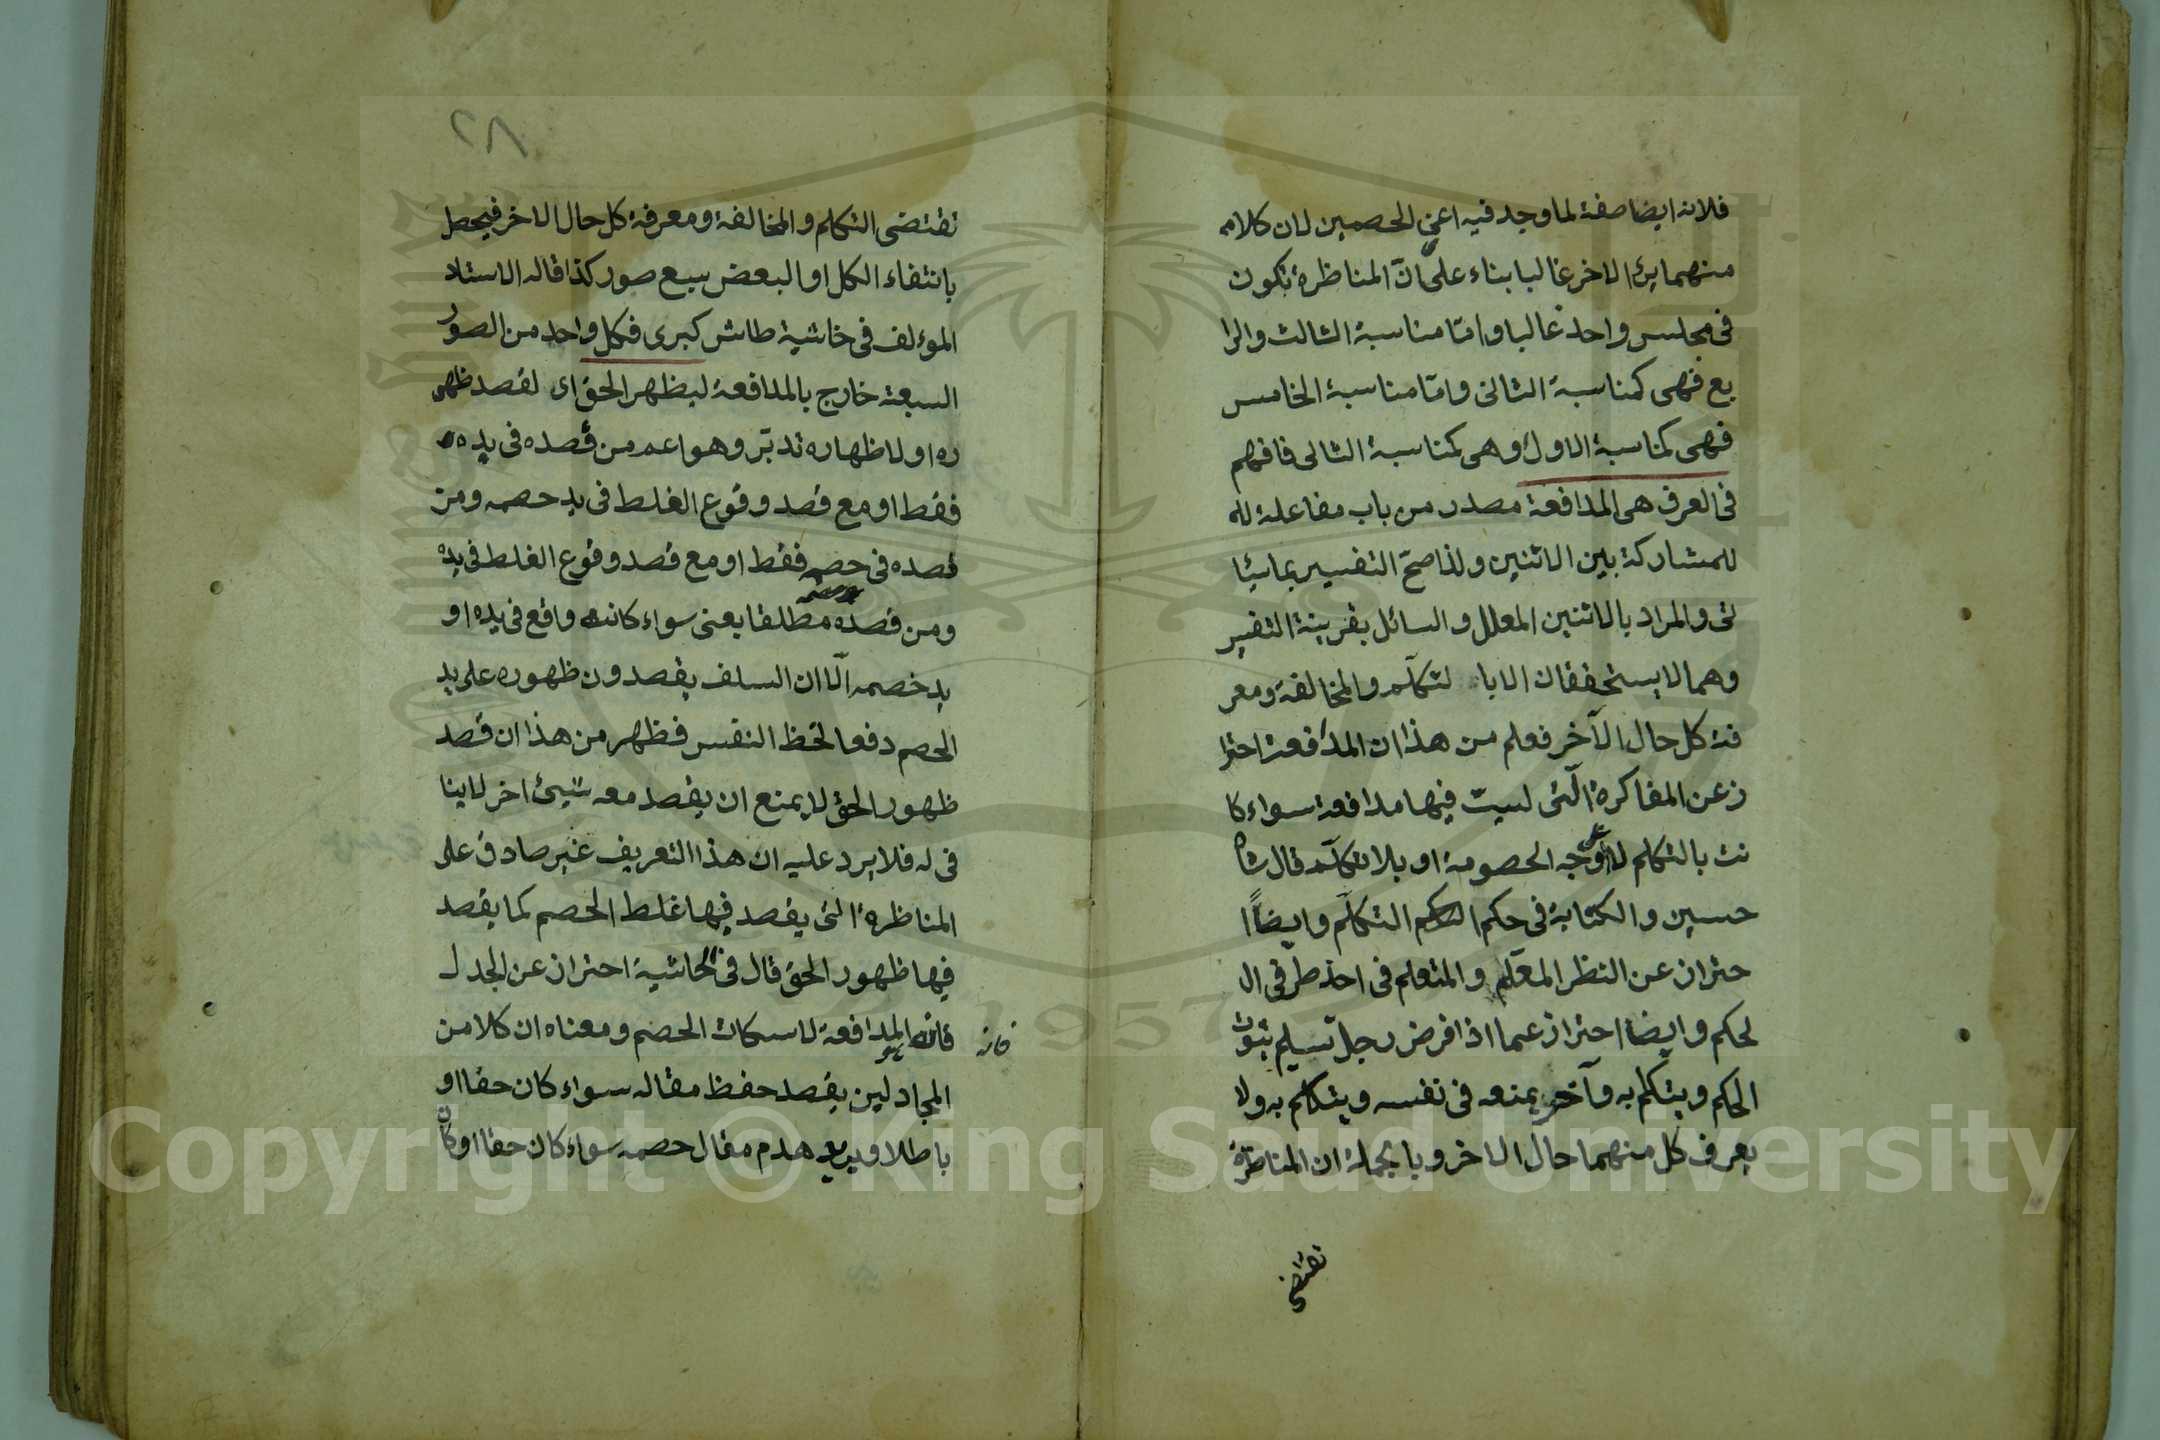 فلانه ايضا صفة لما وجد فيه اعني الخصمين لان كلامه
منهما يرى الاخر غالبا بناء على انّ المناظرة تكون
في مجلس واحد غالبا وامّا مناسبة الثالث والرا
بع فهى كمناسبة الثانى وامّا مناسبة الخامس
فهى كمناسبة الاول وهى كمناسبة الثانى فافهم
فى العرف هى المدافعة مصدر من باب مفاعلة لله
للمشاركة بين الاثنين ولذا صحّ التفسير بما سيئا
تى والمراد بالاثنين المعلل والسائل بقرينة التفسير
وهما لا يستحققان الابا لتكلّم والمخالفة ومعر
فة كل حال الآخر فعلم من هذا ان المدافعة احترا
ز عن المفاكرة الّتى ليست فيها مدافعة سواء كا
نت بالتكلم لا على وجه الخصومة او بلا تكلّم قال شاه
حسين والكتابة فى حكم التكلّم وايضاً ا
حتراز عن النظر المعلّم والمتعلم فى احد طرفى ال
لحكم وايضا احتراز عما اذا فرض رجل تسليم ثبوت
الحكم ويتكلم به وآخر يمنعه فى نفسه ويتكلم به ولا
يعرف كل منهما حال الاخر وبالجملة ان المناظرة
تقتضى
٨٢
تقتضى التكلم والمخالفة ومعرفة كل حال الاخر فيحصل
بانتفاء الكل او البعض سبع صور كذا قاله الاستاد
الموءلف فى حاشية طاش كبرى فكل واحد من الصور
السبعة خارج بالمدافعة ليظهر الحق اى لقصد ظهو
ره او لاظهاره تدبّر وهو اعم من قصده فى يده
فقط او مع قصد وقوع الغلط فى يد خصمه ومن
قصده فى خصمه فقط او مع قصد وقوع الغلط فى يده
ومن قصده مطلقا يعنى سواء كانه واقع فى يده او
يد خصمه الّا ان السلف يقصدون ظهوره على يد
الخصم دفعا لحظ النفس فظهر من هذا ان قصد
ظهور الحق لا يمنع ان يقصد معه شيئ اخر لا ينا
فى له فلا يرد عليه ان هذا التعريف غير صادق على
المناظرة التى يقصد فيها غلط الخصم كما يقصد
فيها ظهور الحق قال فى الحاشية احتراز عن الجدل
فانه المدافعة لاسكات الخصم ومعناه ان كلا من
فانه
المجادلين يقصد حفظ مقاله سواء كان حقا او
باطلا ويريد هدم مقال خصمه سواء كان حقا او كان
Copyright © King Saud University
1957